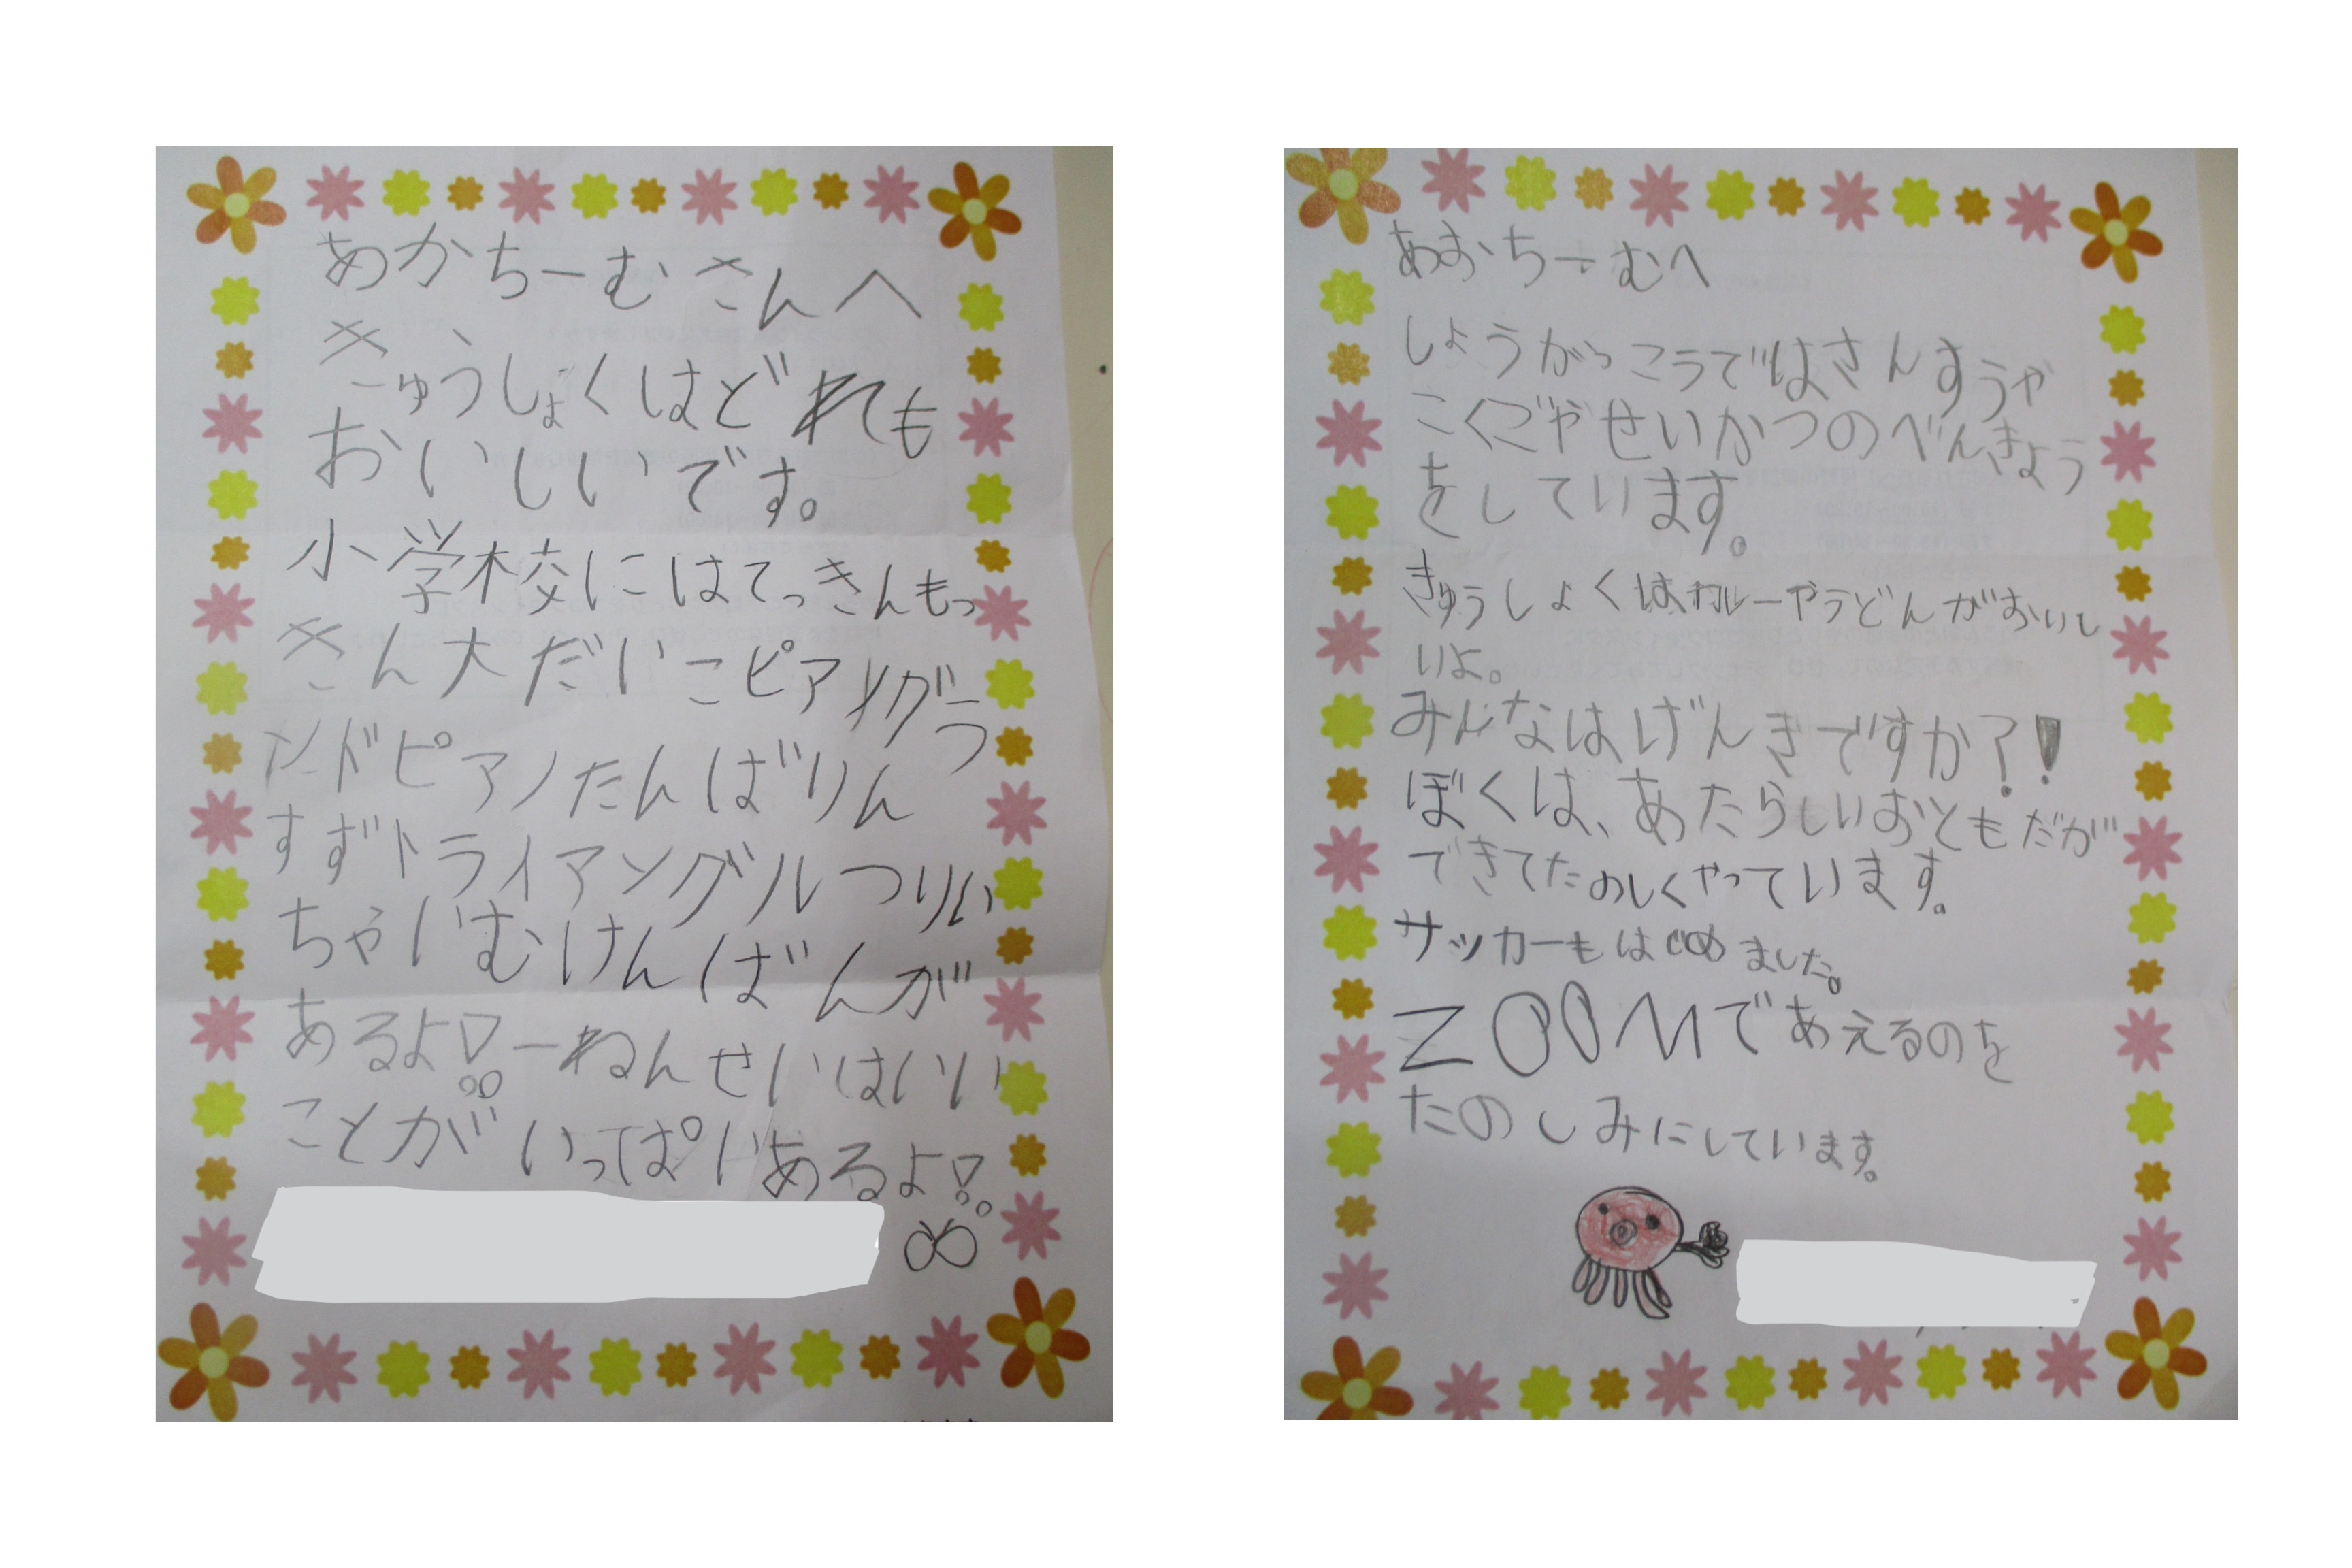 あかちーむさんへ
きゅうしょくはどれも
おいしいです。
小学校にはてっきんもっ
きん大だいこピアノグラ
ンドピアノたんばりん
すずトライアングルつりい
ちゃいむけんばんが
あるよ!!一ねんせいはいい
ことがいっぱいあるよ!!
あおちーむへ
しょうがっこうではさんすうや
こくごやせいかつのべんきょう
をしています。
きゅうしょくは、カレーやうどんがおいし
いよ。
みんなは、げんきですか?!
ぼくは、あたらしいおともだが
できてたのしくやっています。
サッカーもはじめました。
ZOOMであえるのを
たのしみにしています。